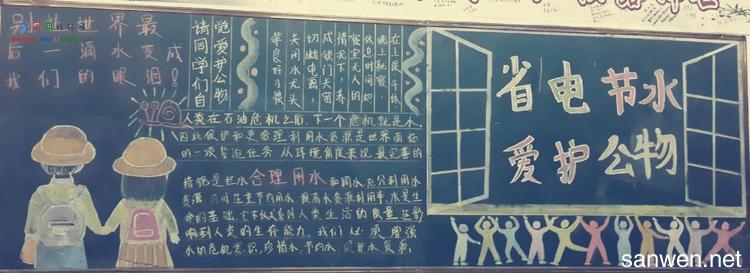 别让世界最
后一滴水变成
我们的眼泪！
请同学们自
觉爱护公物
在上课午休
晚上就寝
休息时间和
寝室无人的
情况下，养
成锁门关窗
切断电源，
关闭水龙头
等良好习惯
人类在石油危机之后，下一个危机就是水，
因此保护和更合理利用水资源是世界面临
的一项紧迫任务 从环境角度来说 最完善的
措施是把水 合理用水 和调水充分利用水
资源 注重节约用水，提高水资源利用率，水是生
命的基础，它不仅影响人类生活的质量，还影
响到人类的生存能力，我们必须增强
水的危机意识，珍惜水，节约水
省电节水
爱护公物
sanwen.net